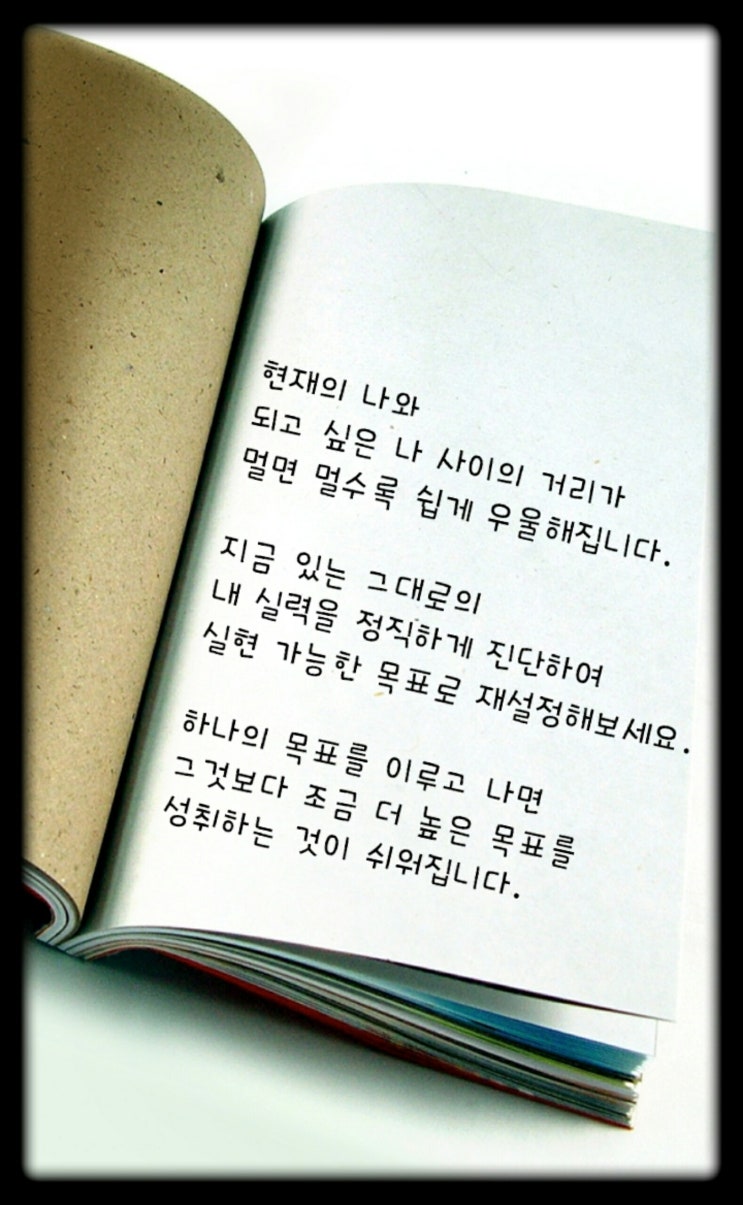 현재의 나와
되고 싶은 나 사이의 거리가
멀면 멀수록 쉽게 우울해집니다.
지금 있는 그대로의
내 실력을 정직하게 진단하여
실현 가능한 목표로 재설정해보세요.
하나의 목표를 이루고 나면
그것보다 조금 더 높은 목표를
성취하는 것이 쉬워집니다.